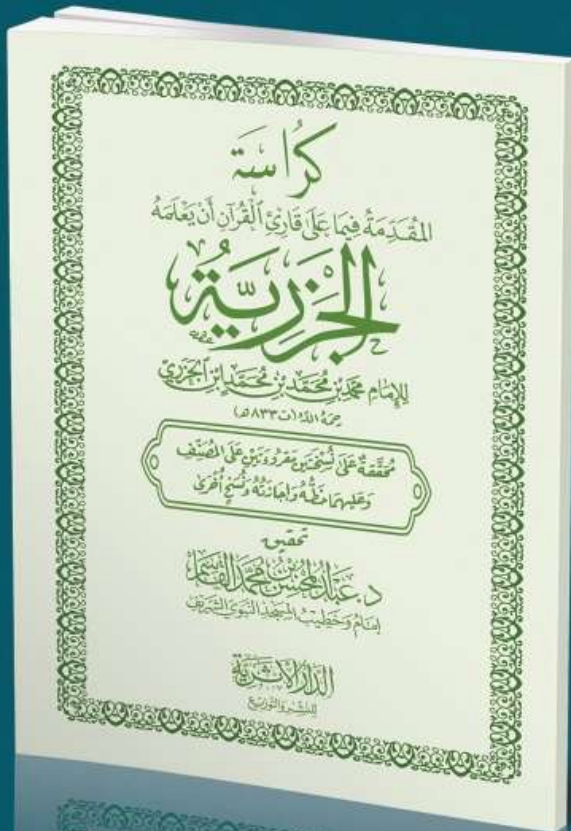 كراسة
المُقَدِّمَةُ فِيمَا عَلَى قَارِئِ الْقُرْآنِ أَنْ يَعْلَمَهُ
الجَزَرِيَّةُ
لِلْإِمَامِ مُحَمَّدِ بْنِ مُحَمَّدِ بْنِ مُحَمَّدِ ابْنِ الْجَزَرِيِّ
رحمه الله (ت ٨٣٣ هـ)
مُحَقَّقَةٌ عَلَى نُسْخَتَيْنِ مَقْرُوءَتَيْنِ عَلَى المُصَنِّفِ
وَعَلَيْهِمَا خَطُّهُ وَإِجَازَتُهُ وَنُسَخٍ أُخْرَى
تحقيق
د. عبد المحسن بن محمد القاسم
إمام وخطيب المسجد النبوي الشريف
الدار الأثرية
للنشر والتوزيع